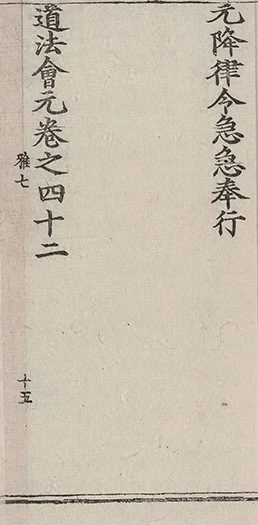 元降律令急急奉行
道法會元卷之四十二
雅七
十五